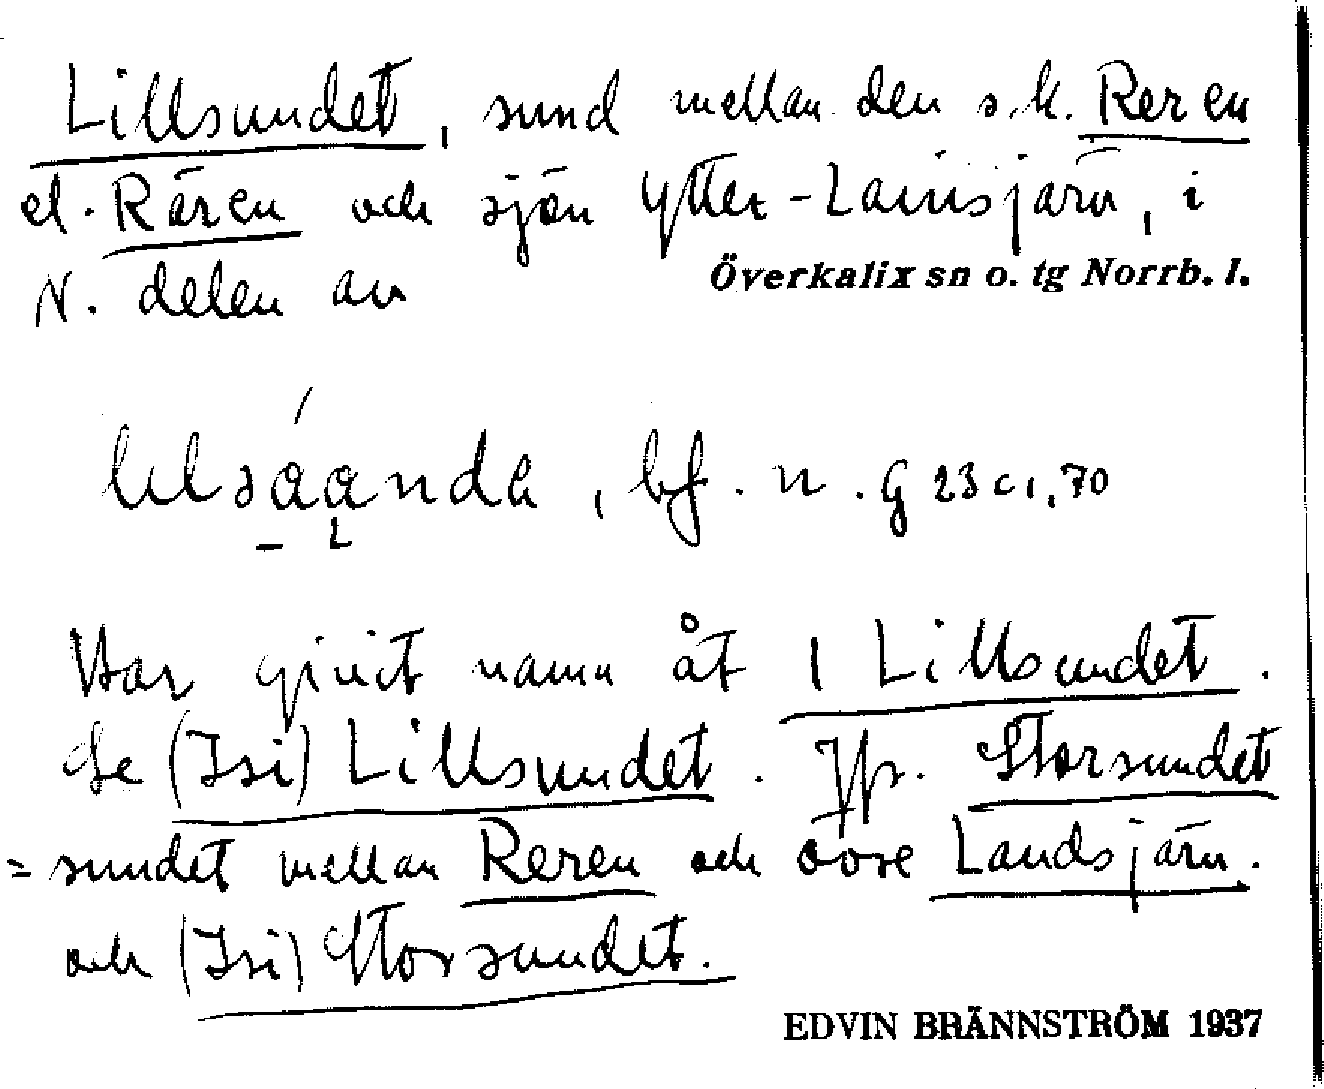 Lillsundet, sund mellan den s.k. Reren
el. Rären och sjön Ytter-Lansjärv, i
N. delen av
Överkalix sn o. tg Norrb. l.
bf. n. G 23 c 1,70
Har givit namn åt 1 Lillsundet.
Se (Isi) Lillsundet. Jfr. Storsundet
= sundet mellan Reren och övre Landsjärv.
och (Isi) Storsundet.
EDVIN BRÄNNSTRÖM 1937